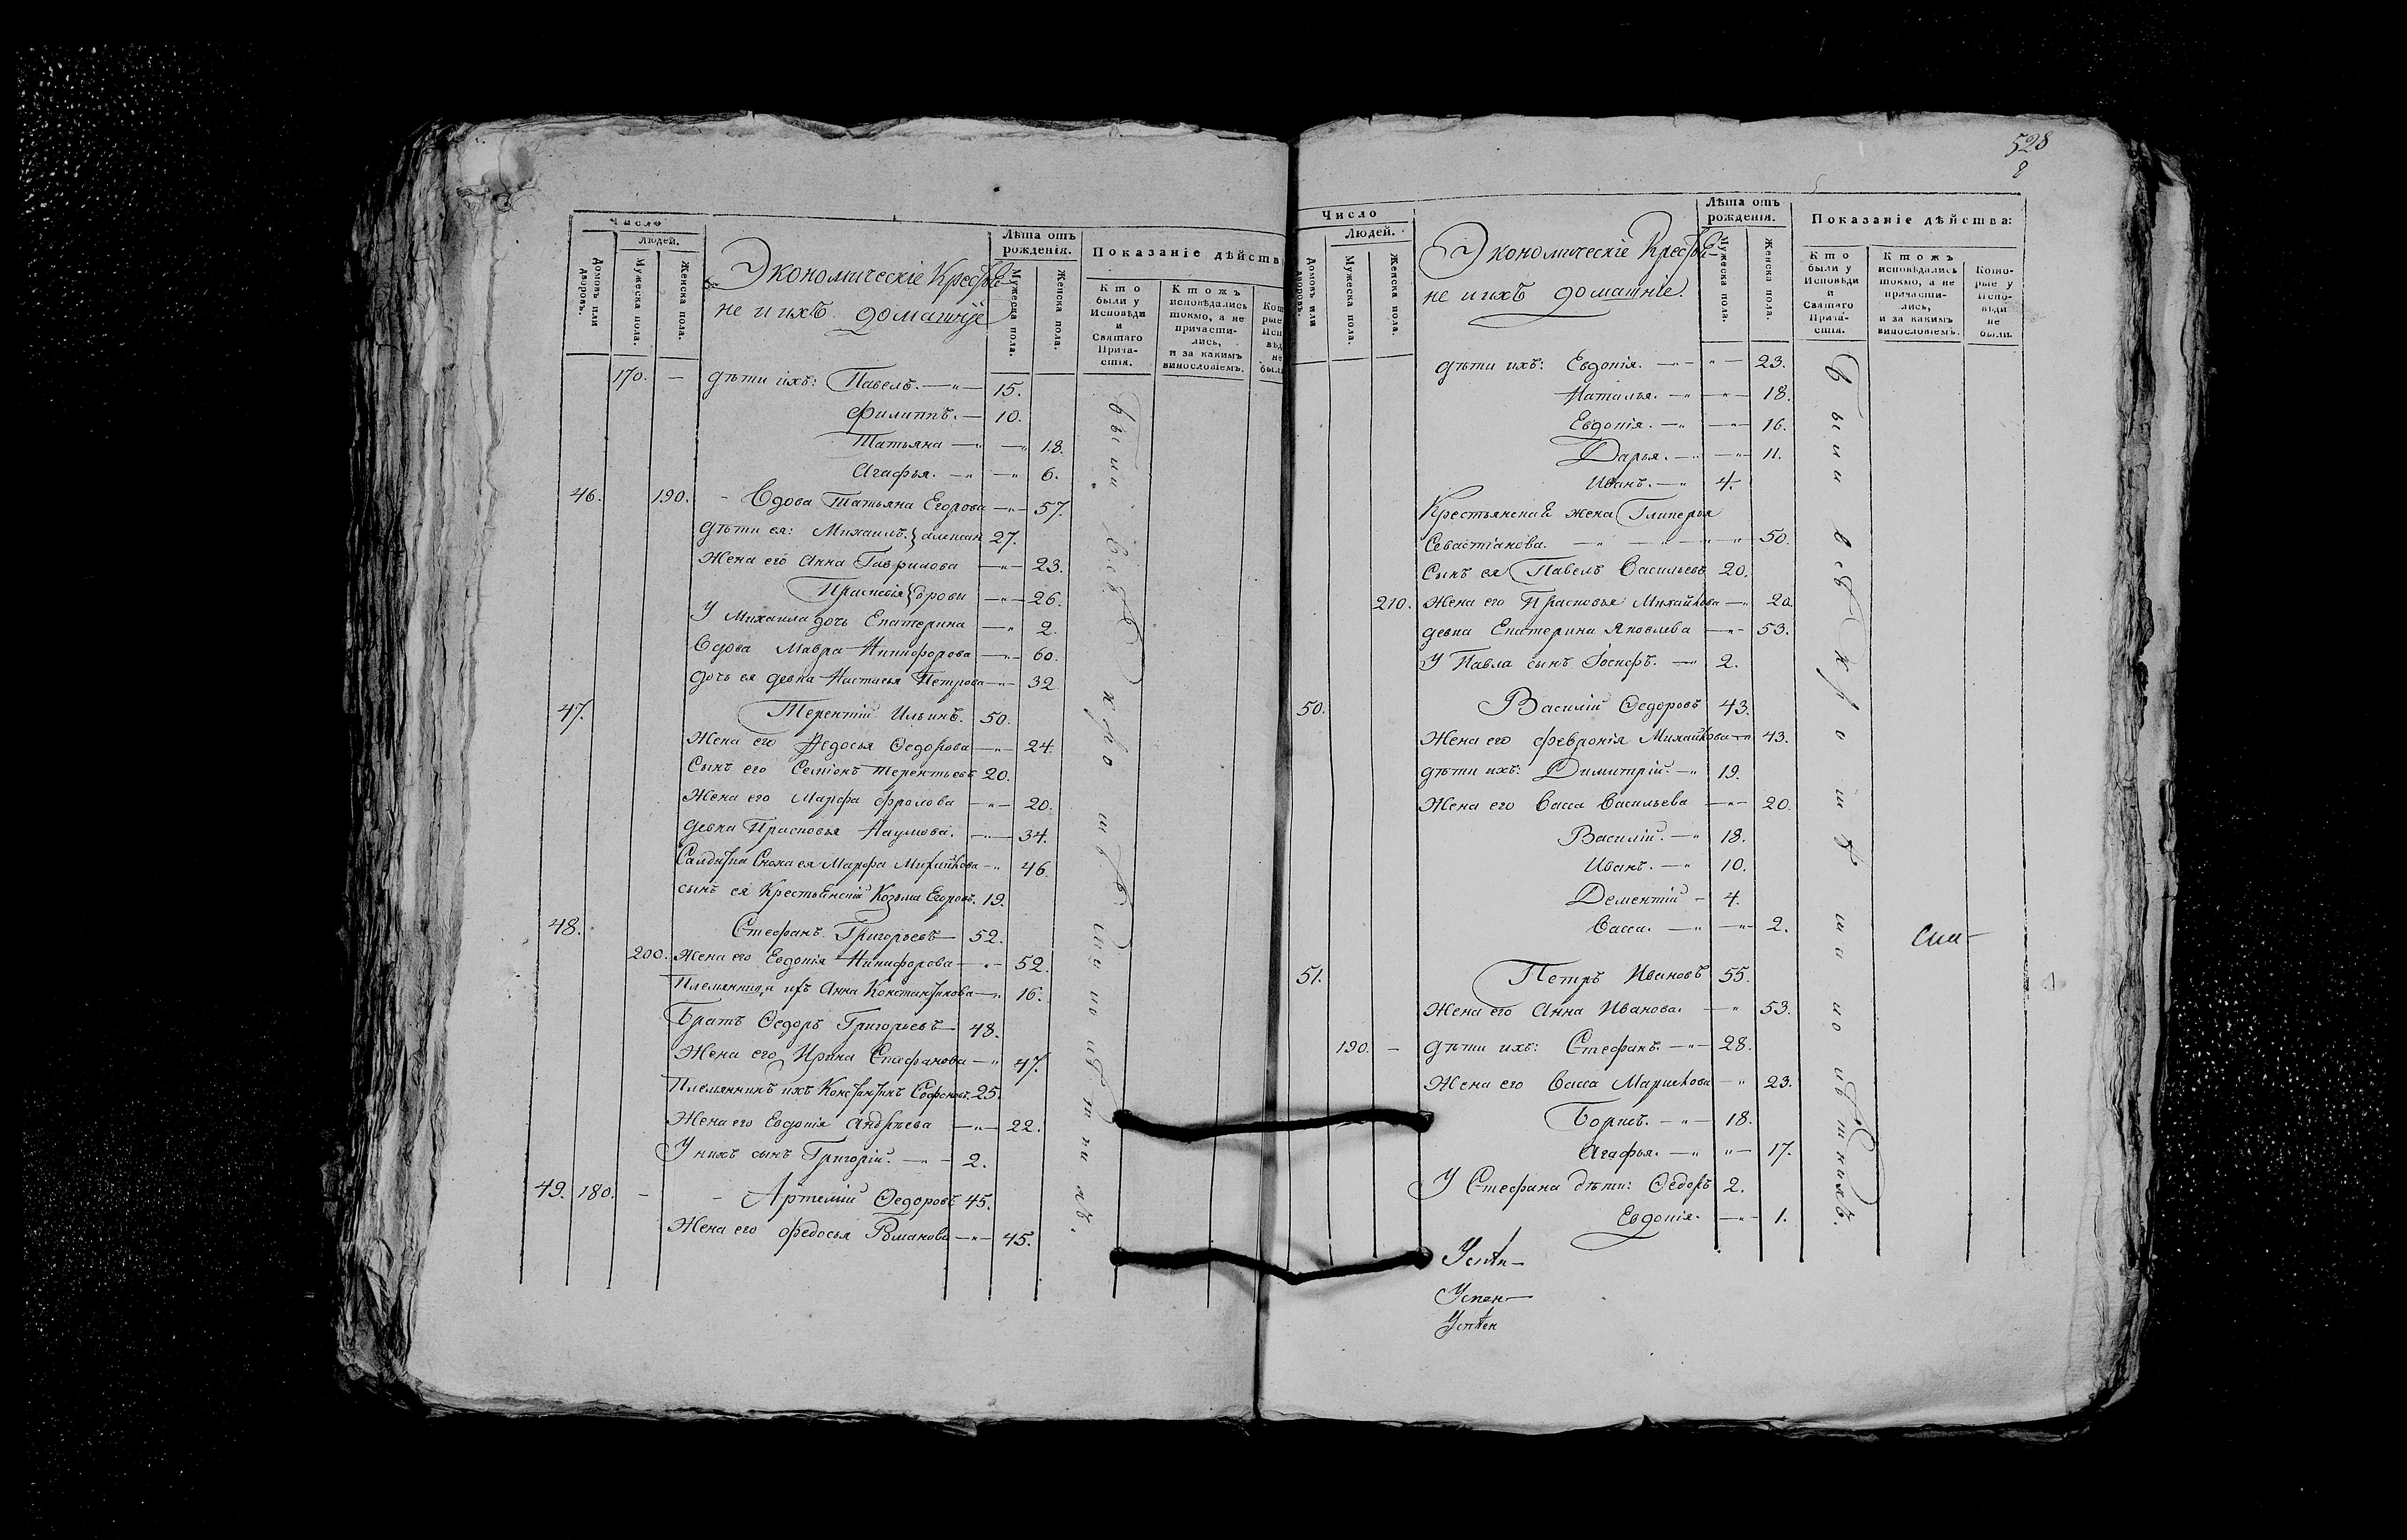 Число
Людей.
Домовъ или дворовъ.
Мужеска пола.
Женска пола.
Экономическіе Крестья-
не и ихъ домашніе
Лѣта отъ рожденія.
Мужеска пола.
Женска пола.
Показаніе дѣйств
Кто были у Исповѣди и Святаго Прича-стія.
Ктожъ исповѣдались токмо, а не причасти-лись, и за какимъ винословіемъ.
170. — дѣти ихъ: Павелъ. — 15.
Филиппъ. — 10.
Татьяна — — 18.
Агафья. — — 6.
46. 190. - Вдова Татьяна Егорова — 57.
дѣти ея: Михаилъ. } алексан 27.
Жена его Анна Гаврилова — 23.
Прасковія } дровы — 26.
У Михаила дочь Екатерина — 2.
Вдова Мавра Никифорова — 60.
дочь ея девка Настасья Петрова — 32
47. Терентій Ильинъ. 50.
Жена его Федосья Ѳедорова — 24
Сынъ его Семіонъ Терентьевъ 20.
Жена его Марфа Фролова — 20.
девка Прасковья Наумова. — 34.
Салдатка Сноха ея Марфа Михайлова — 46.
сынъ ея Крестьянскій Козьма Егоровъ. 19.
48. Стефанъ Григорьевъ — 52.
200. Жена его Евдокія Никифорова — 52.
Племянница ихъ Анна Константинова — 16.
Братъ Ѳедоръ Григорьевъ — 48.
Жена его Ирина Стефанова — 47.
Племянникъ ихъ Константинъ Софоновъ. 25.
Жена его Евдокія Андрѣева — 22.
У нихъ сынъ Григорій. — 2.
49. 180. — - Артемій Ѳедоровъ 45.
Жена его Федосья Романова — 45.
были всѣ кромѣ малолѣтнихъ.
528
Число
Людей.
Домовъ или дворовъ.
Мужеска пола.
Женска пола.
Экономическіе Крестья-
не и ихъ домашніе.
Лѣта отъ рожденія.
Мужеска пола.
Женска пола.
Показаніе дѣйства:
Кто были у Исповѣди и Святаго Прича-стія.
Ктожъ исповѣдались токмо, а не причасти-лись, и за какимъ винословіемъ.
Кото-рые у Испо-вѣди не были.
дѣти ихъ: Евдокія. — 23.
Наталья. — 18.
Евдокія. — 16.
Дарья. — 11.
Иванъ. — 4.
Крестьянская жена Гликерья
Севастіанова. — 50.
Сынъ ея Павелъ Васильевъ 20.
210. Жена его Прасковья Михайлова — 20
девка Екатерина Яковлева — 53.
У Павла сынъ Іосифъ. — 2.
50. Василій Ѳедоровъ 43.
Жена его Февронія Михайлова — 43.
дѣти ихъ: Димитрій. — 19.
Жена его Васса Васильева — 20.
Василій. — 18.
Иванъ. — 10.
Дементій — 4.
Васса. — 2.
51. Петръ Ивановъ 55.
Жена его Анна Иванова. — 53.
190. — дѣти ихъ: Стефанъ. — 28.
Жена его Васса Маркелова — 23.
Борисъ. — 18.
Агафья. — 17.
У Стефана дѣти: Ѳедоръ 2.
Евдокія. — 1.
были всѣ кромѣ малолѣтнихъ.
Успен—